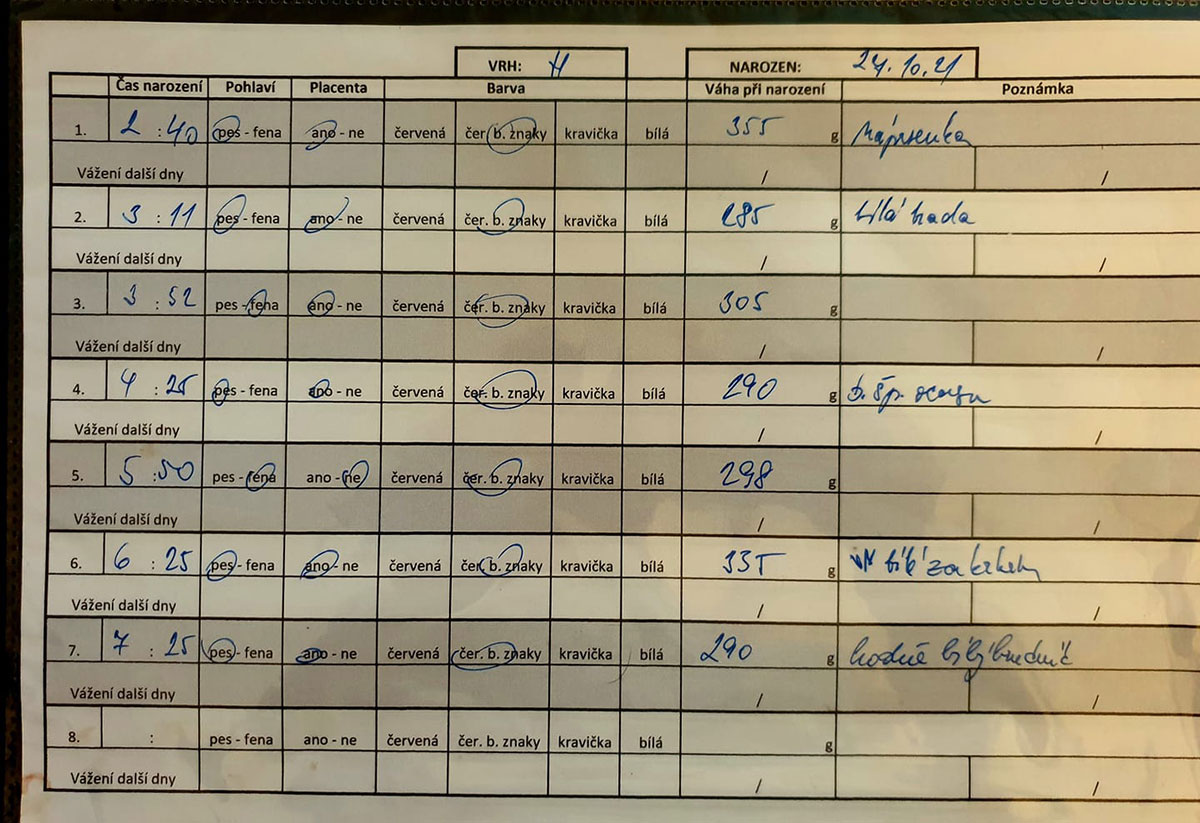 VRH: H NAROZEN: 24.10.21
Čas narození Pohlaví Placenta Barva Váha při narození Poznámka
1. 2 : 40 pes - fena ano - ne červená čer. b. znaky kravička bílá 355 g náprsenka
Vážení další dny / /
2. 3 : 11 pes - fena ano - ne červená čer. b. znaky kravička bílá 285 g bílá brada
Vážení další dny / /
3. 3 : 52 pes - fena ano - ne červená čer. b. znaky kravička bílá 305 g
Vážení další dny / /
4. 4 : 25 pes - fena ano - ne červená čer. b. znaky kravička bílá 290 g b. šp. ocasu
Vážení další dny / /
5. 5 : 50 pes - fena ano - ne červená čer. b. znaky kravička bílá 298 g
Vážení další dny / /
6. 6 : 25 pes - fena ano - ne červená čer. b. znaky kravička bílá 335 g bílé za krkem
Vážení další dny / /
7. 7 : 25 pes - fena ano - ne červená čer. b. znaky kravička bílá 290 g hodně bílý
Vážení další dny / /
8. : pes - fena ano - ne červená čer. b. znaky kravička bílá g
Vážení další dny / /